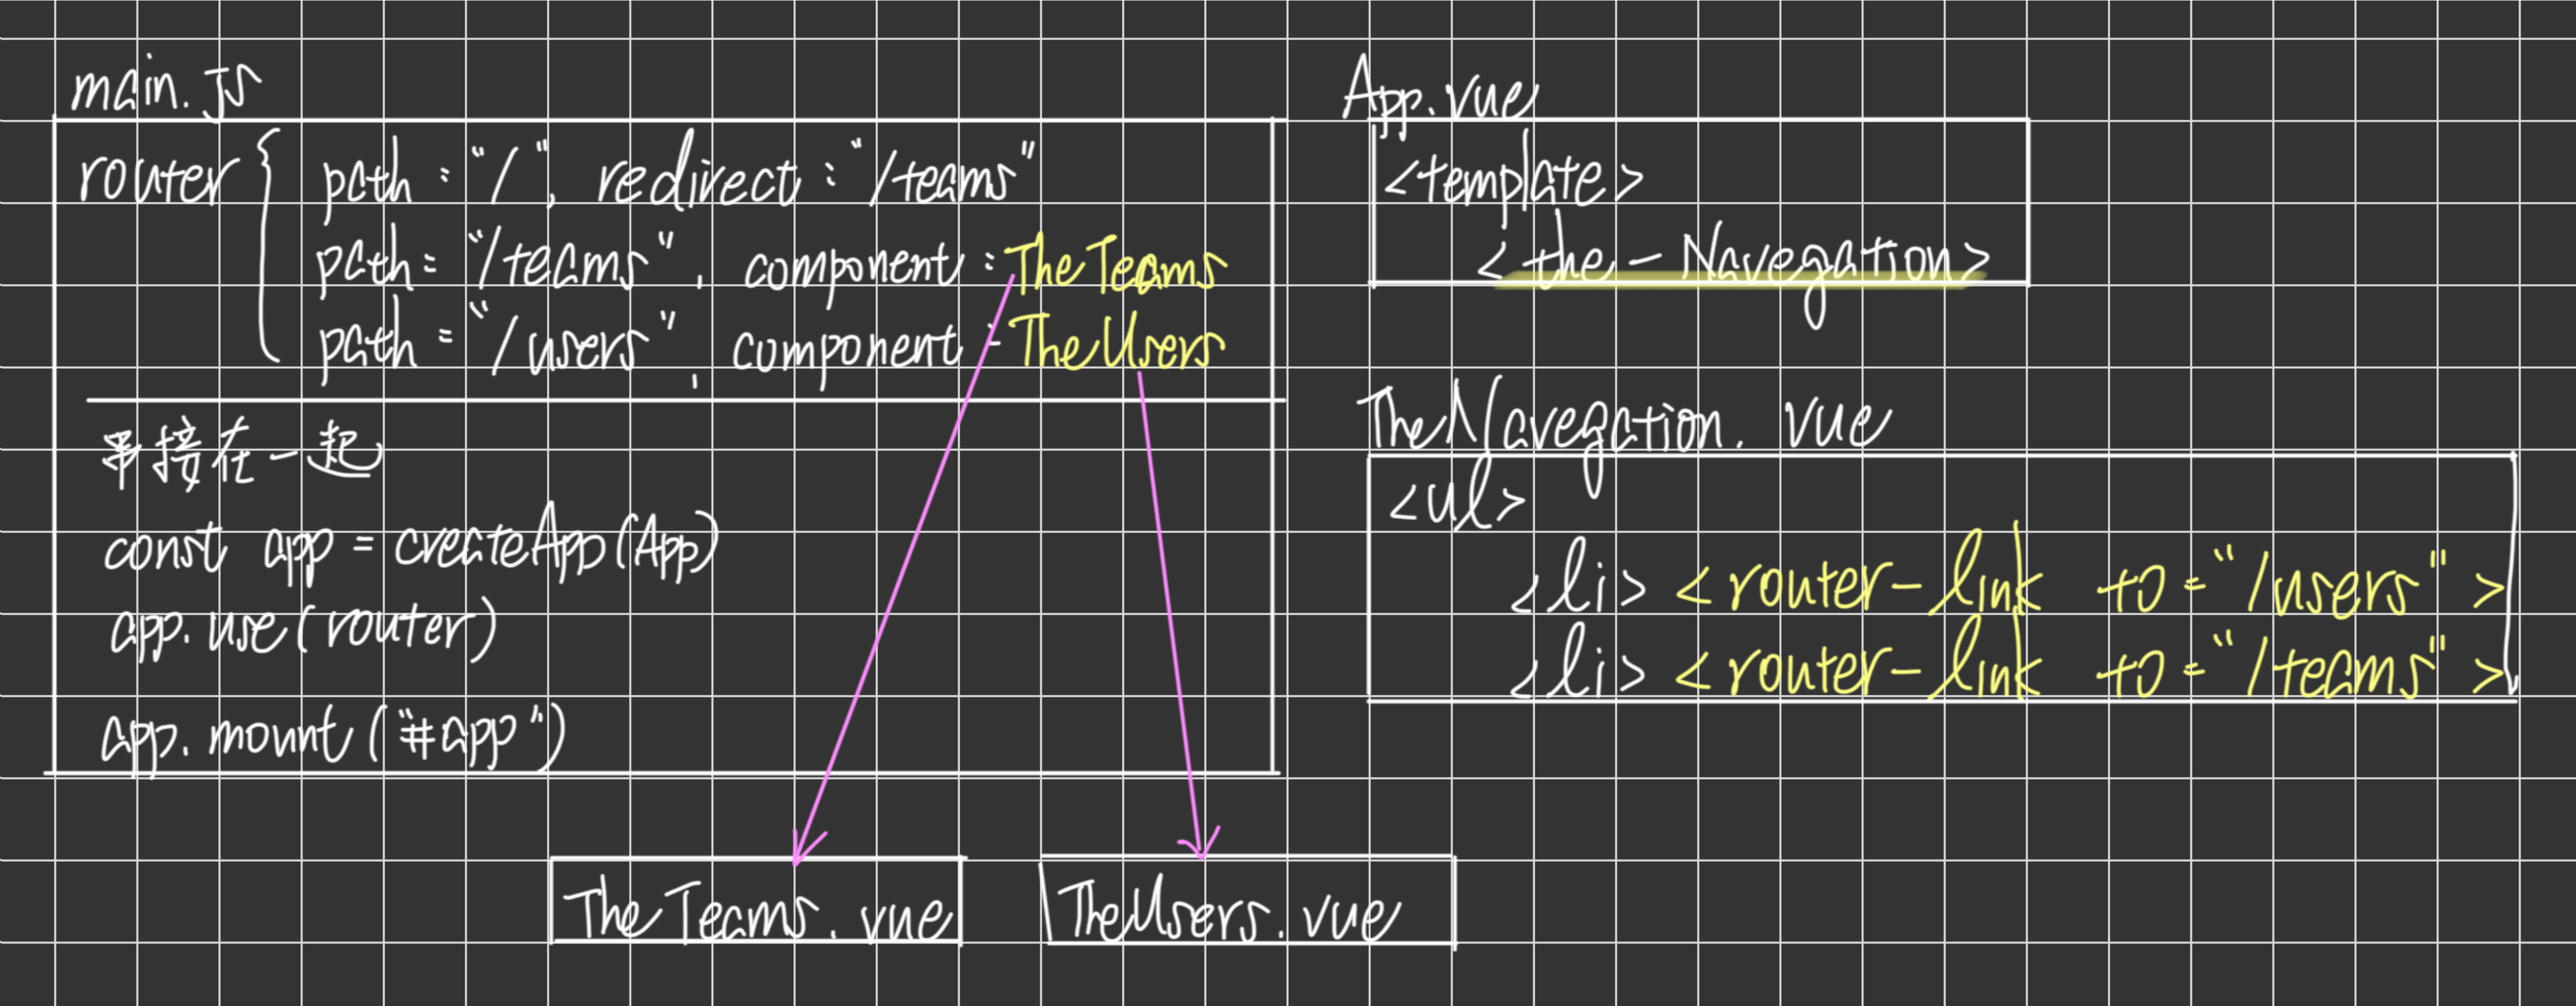 main.js
router { path: "/", redirect: "/teams"
path: "/teams", component: TheTeams
path: "/users", component: TheUsers
串接在一起
const app = createApp(App)
app.use(router)
app.mount("#app")
App.vue
<template>
<the-Navegation>
TheNavegation.vue
<ul>
<li> <router-link to="/users">
<li> <router-link to="/teams">
TheTeams.vue
TheUsers.vue